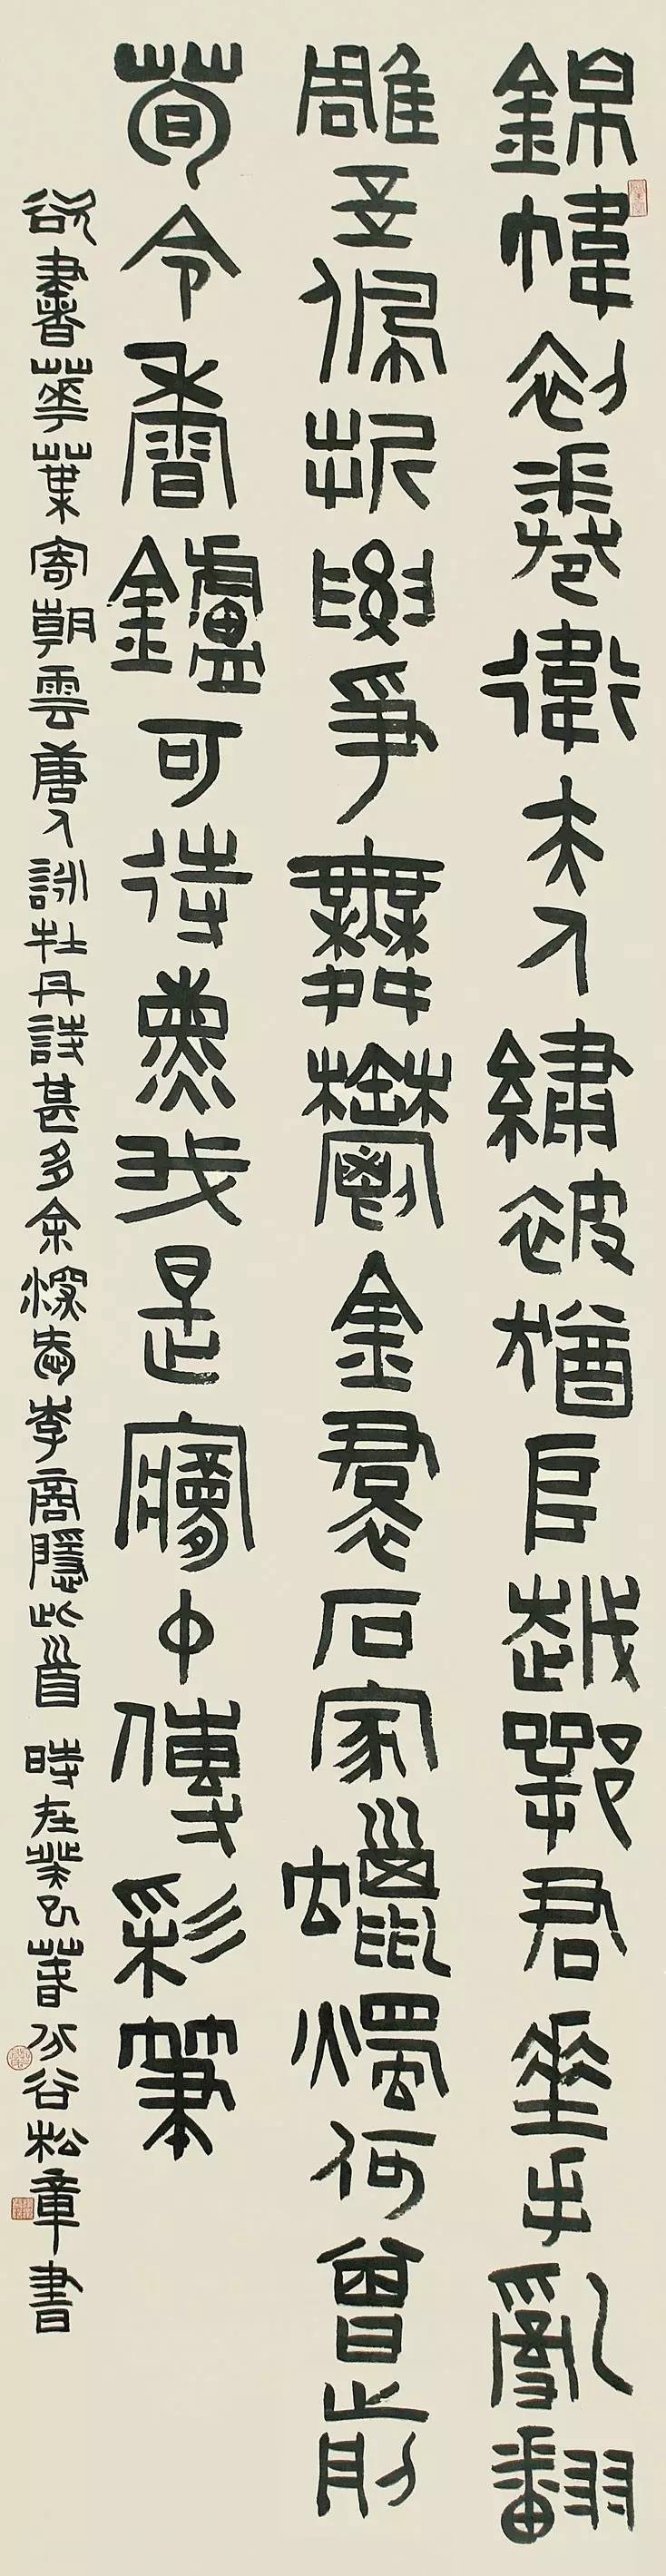 錦幃初卷衛夫人繡被猶堆越鄂君垂手亂翻
雕玉佩折腰爭舞鬱金裙石家蠟燭何曾剪
荀令香鑪可待熏我是夢中傳彩筆
欲書華葉寄朝雲唐人詠牡丹詩甚多余深愛李商隱此首 時在癸卯春分谷松章書